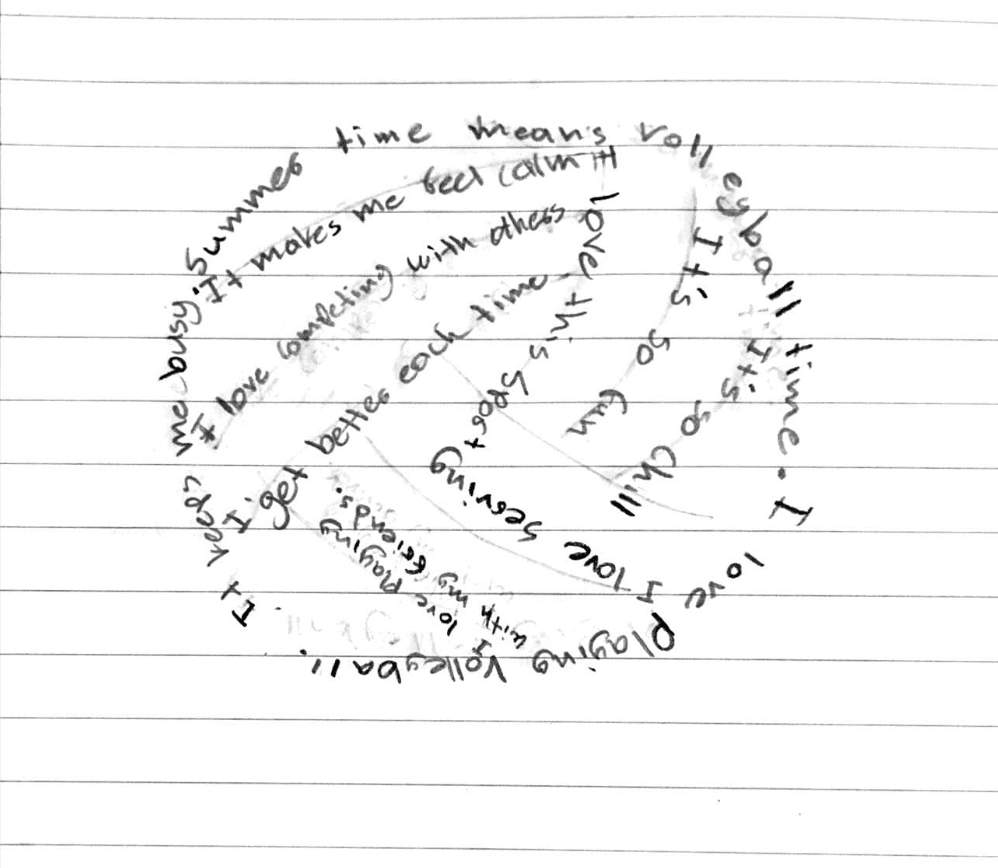 Summer time means volleyball time. I love playing volleyball. It keeps me busy.
It makes me feel calm
I love competing with others
I get better each time
I love this sport
It's so fun
It's so chill
I love serving
I love playing
with my friends.